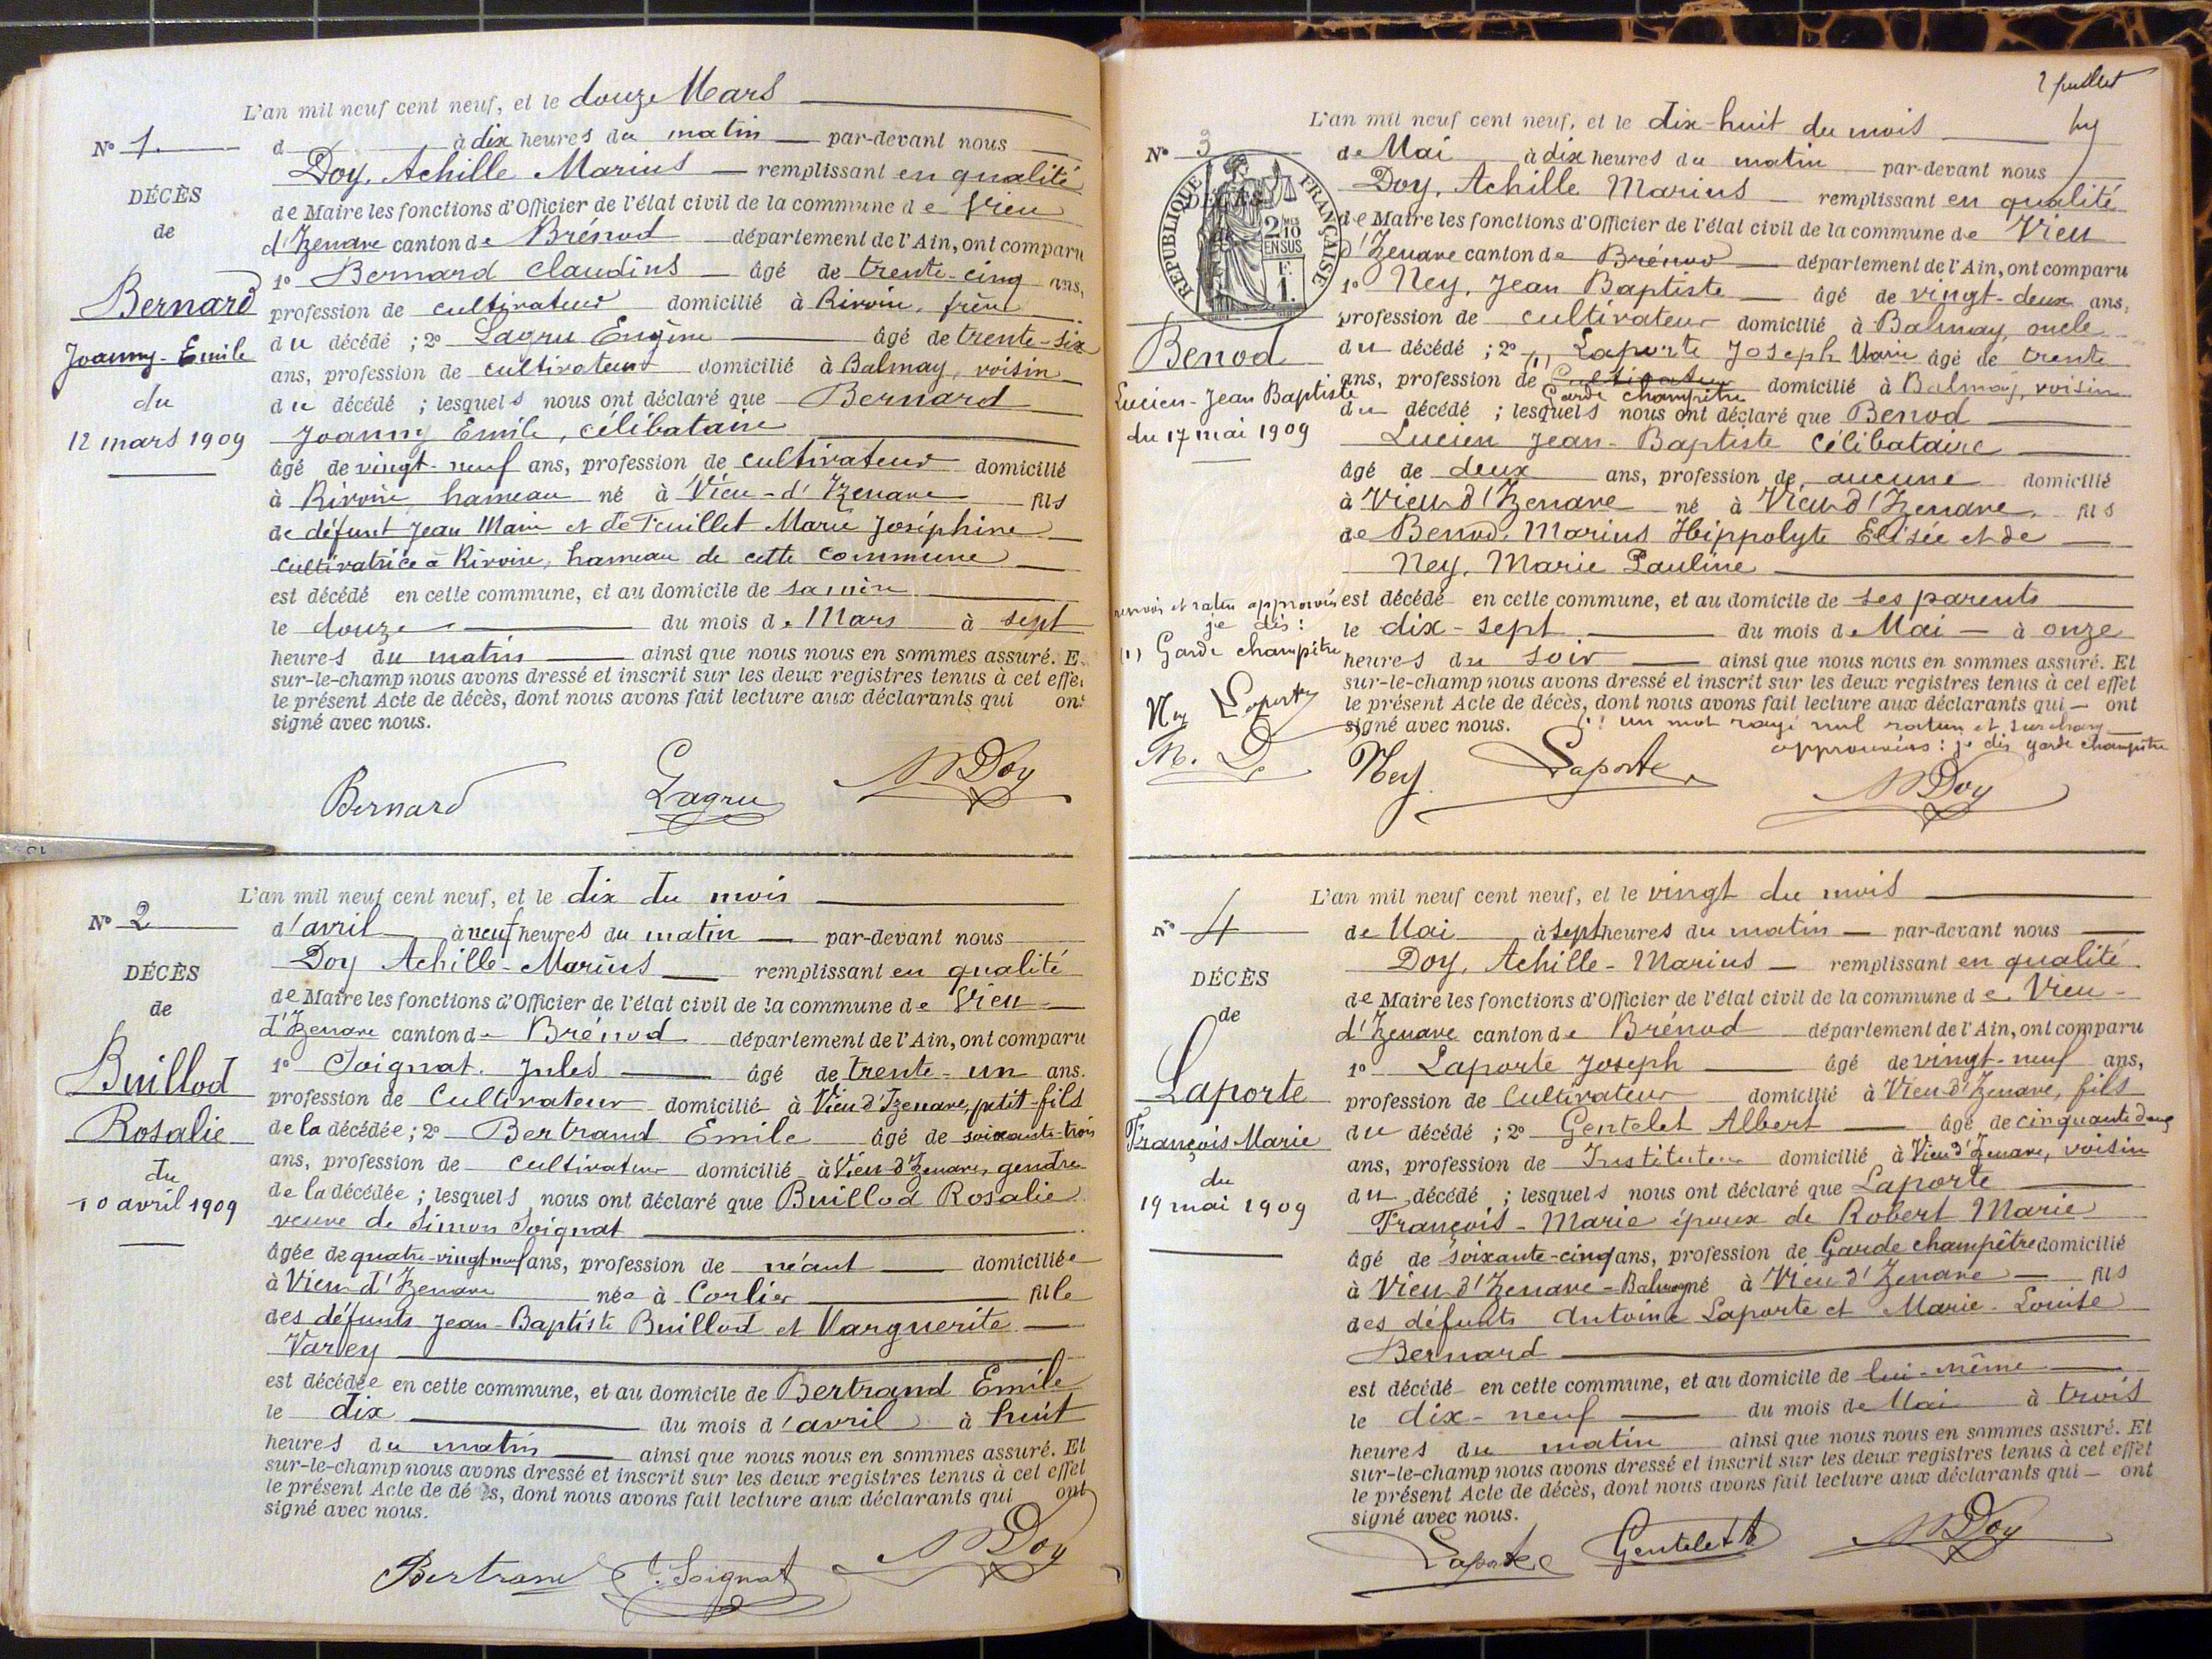 L'an mil neuf cent neuf, et le douze Mars
N° 1. d à dix heures du matin par-devant nous
DÉCÈS
de
Bernard
Joanny-Emile
du
12 mars 1909
Doy, Achille Marius remplissant en qualité
de Maire les fonctions d'Officier de l'état civil de la commune de Vieu
d'Izenave canton de Brénod département de l'Ain, ont comparu
1° Bernard Claudius âgé de trente-cinq ans,
profession de cultivateur domicilié à Rivoire, frère
du décédé ; 2° Lagru Eugène âgé de trente-six
ans, profession de cultivateur domicilié à Balmay, voisin
du décédé ; lesquels nous ont déclaré que Bernard
Joanny Emile, célibataire
âgé de vingt-neuf ans, profession de cultivateur domicilié
à Rivoire hameau né à Vieu-d'Izenave fils
de défunt Jean Marie et de Feuillet Marie Joséphine
cultivatrice à Rivoire, hameau de cette commune
est décédé en cette commune, et au domicile de sa mère
le douze du mois de Mars à sept
heures du matin ainsi que nous nous en sommes assuré. E
sur-le-champ nous avons dressé et inscrit sur les deux registres tenus à cet effe
le présent Acte de décès, dont nous avons fait lecture aux déclarants qui on
signé avec nous.
Bernard Lagru Doy
L'an mil neuf cent neuf, et le dix du mois
N° 2 d'avril à neuf heures du matin par-devant nous
DÉCÈS
de
Buillod
Rosalie
du
10 avril 1909
Doy Achille-Marius remplissant en qualité
de Maire les fonctions d'Officier de l'état civil de la commune de Vieu
d'Izenave canton de Brénod département de l'Ain, ont comparu
1° Soignat. Jules âgé de trente-un ans.
profession de Cultivateur domicilié à Vieu d'Izenave, petit-fils
de la décédée ; 2° Bertrand Emile âgé de soixante-trois
ans, profession de cultivateur domicilié à Vieu d'Izenave, gendre
de la décédée ; lesquels nous ont déclaré que Buillod Rosalie
veuve de Simon Soignat
âgée de quatre-vingt neuf ans, profession de néant domiciliée
à Vieu d'Izenave née à Corlier fille
des défunts Jean-Baptiste Buillod et Marguerite
Varley
est décédée en cette commune, et au domicile de Bertrand Emile
le dix du mois d'avril à huit
heures du matin ainsi que nous nous en sommes assuré. Et
sur-le-champ nous avons dressé et inscrit sur les deux registres tenus à cet effet
le présent Acte de dé s, dont nous avons fait lecture aux déclarants qui ont
signé avec nous.
Bertrand J. Soignat Doy
2 feuillet
L'an mil neuf cent neuf, et le dix-huit du mois
N° 3 de Mai à dix heures du matin par-devant nous
DÉCÈS
RÉPUBLIQUE FRANÇAISE
2/10 EN SUS
F. 1.
Benod
Lucien-Jean Baptiste
du 17 mai 1909
Doy, Achille Marius remplissant en qualité
de Maire les fonctions d'Officier de l'état civil de la commune de Vieu
d'Izenave canton de Brénod département de l'Ain, ont comparu
1° Ney, Jean Baptiste âgé de vingt-deux ans,
profession de cultivateur domicilié à Balmay, oncle
du décédé ; 2° (1) Laporte Joseph Marie âgé de trente
ans, profession de Cultivateur domicilié à Balmay, voisin
Garde champêtre
du décédé ; lesquels nous ont déclaré que Benod
Lucien Jean-Baptiste Célibataire
âgé de deux ans, profession de aucune domicilié
à Vieu d'Izenave né à Vieu d'Izenave, fils
de Benod, Marius Hippolyte Elisée et de
Ney, Marie Pauline
est décédé en cette commune, et au domicile de ses parents
le dix-sept du mois de Mai à onze
heures du soir ainsi que nous nous en sommes assuré. Et
sur-le-champ nous avons dressé et inscrit sur les deux registres tenus à cet effet
le présent Acte de décès, dont nous avons fait lecture aux déclarants qui ont
signé avec nous. (1) un mot rayé nul rature et surcharge
approuvées : je dis garde champêtre
renvoi et rature approuvés
je dis :
(1) Garde champêtre
Ney Laporte
M. D
Ney Laporte Doy
L'an mil neuf cent neuf, et le vingt du mois
N° 4 de Mai à sept heures du matin par-devant nous
DÉCÈS
de
Laporte
François Marie
du
19 mai 1909
Doy, Achille-Marius remplissant en qualité
de Maire les fonctions d'Officier de l'état civil de la commune de Vieu
d'Izenave canton de Brénod département de l'Ain, ont comparu
1° Laporte Joseph âgé de vingt-neuf ans,
profession de Cultivateur domicilié à Vieu d'Izenave, fils
du décédé ; 2° Gentelet Albert âgé de cinquante deux
ans, profession de Instituteur domicilié à Vieu d'Izenave, voisin
du décédé ; lesquels nous ont déclaré que Laporte
François-Marie époux de Robert Marie
âgé de soixante-cinq ans, profession de Garde champêtre domicilié
à Vieu d'Izenave-Balmay né à Vieu d'Izenave fils
des défunts Antoine Laporte et Marie-Louise
Bernard
est décédé en cette commune, et au domicile de lui-même
le dix-neuf du mois de Mai à trois
heures du matin ainsi que nous nous en sommes assuré. Et
sur-le-champ nous avons dressé et inscrit sur les deux registres tenus à cet effet
le présent Acte de décès, dont nous avons fait lecture aux déclarants qui ont
signé avec nous.
Laporte Gentelet A Doy